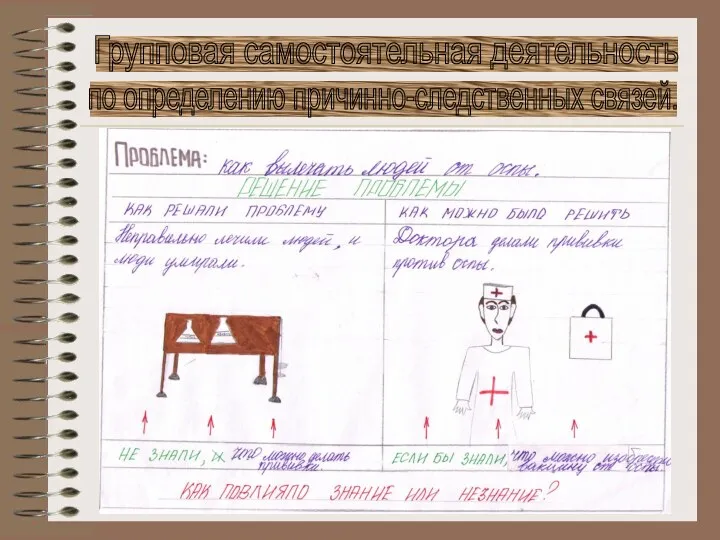 Групповая самостоятельная деятельность
по определению причинно-следственных связей.
ПРОБЛЕМА: как вылечать людей от оспы.
РЕШЕНИЕ ПРОБЛЕМЫ
КАК РЕШАЛИ ПРОБЛЕМУ
Неправильно лечили людей, и
люди умирали.
КАК МОЖНО БЫЛО РЕШИТЬ
Доктора делали прививки
против оспы.
НЕ ЗНАЛИ, что можно делать
прививки.
ЕСЛИ БЫ ЗНАЛИ, что можно изобрести
вакцину от оспы.
КАК ПОВЛИЯЛО ЗНАНИЕ ИЛИ НЕЗНАНИЕ?